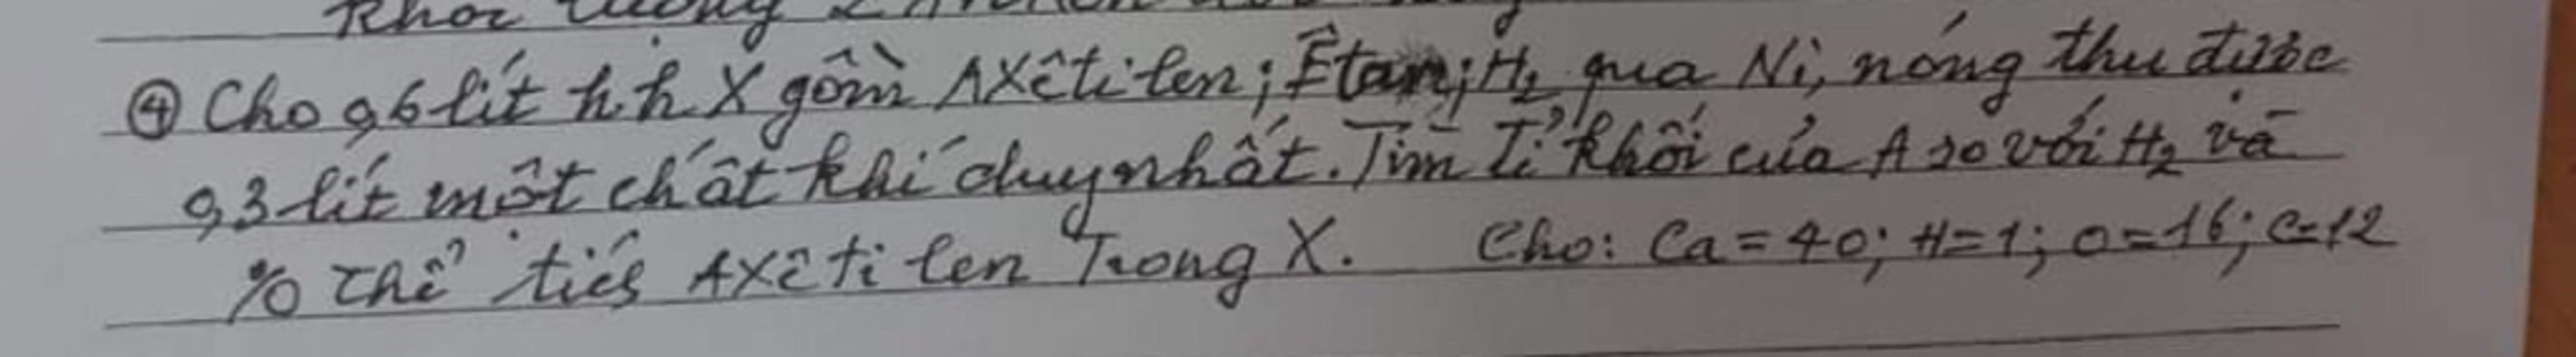 Khối lượng
④ Cho 0,6 lít h.h X gồm AXêtilen; Êtan; H₂ qua Ni, nóng thu được
0,3 lít một chất khí duy nhất. Tìm Tỉ khối của A so với H₂ và
% thể tích AXêtilen Trong X. Cho: Ca=40; H=1; O=16; C=12